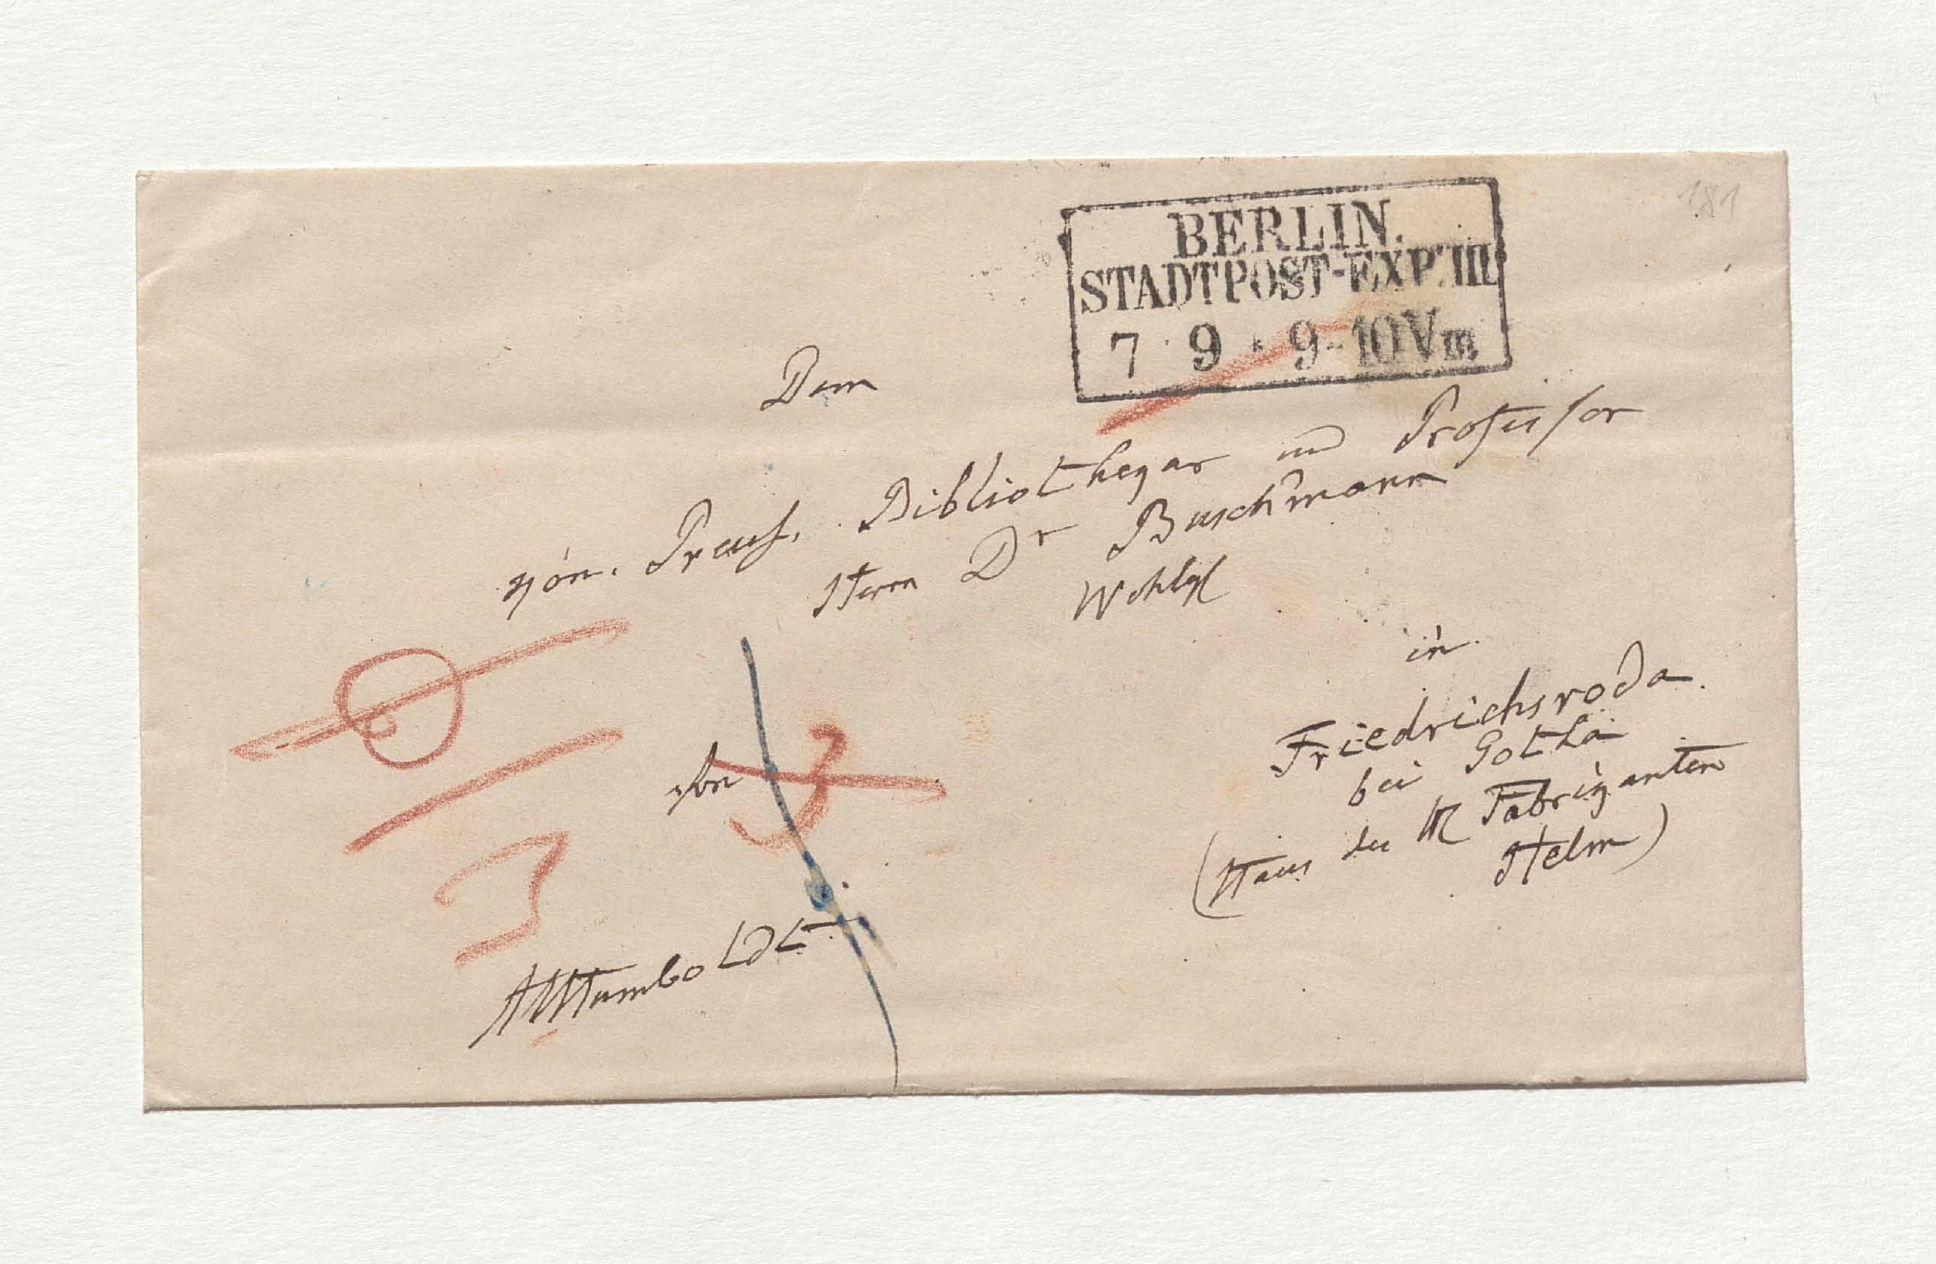 181
BERLIN.
STADTPOST-EXP. III
7 9 * 9-10 Vm
Dem
Kön. Preuß. Bibliothekar und Professor
Herrn Dr Buschmann
Wohlg
in
Friedrichsroda
bei Gotha
(Haus des H Fabrikanten
Helm)
3
3
AvHumboldt